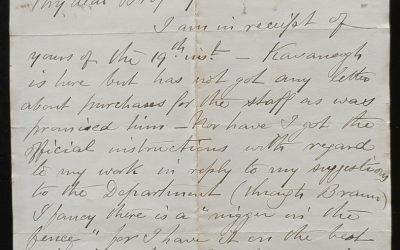 My dear
I am in receipt of
yours of the 19th inst. — Kavanagh
is here but has not got any letter
about purchases for the staff as was
promised him — Nor have I got the
official instructions with regard
to my work in reply to my suggestions
to the Department (through Braun)
I fancy there is a "nigger in the
fence" for I have it on the best